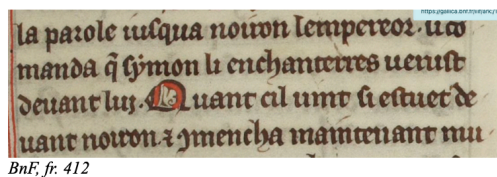 https://gallica.bnf.fr/iiif/ark:/
la parole iusqua noiron lempereor. li co
manda q̃ symon li enchanterres uenist
deuant lui. Quant cil uint si estuet de
uant noiron ⁊ ꝯmencha maintenant mu
BnF, fr. 412